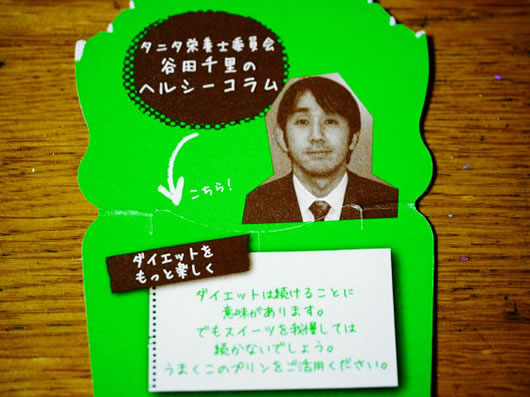 タニタ栄養士委員会
谷田千里の
ヘルシーコラム
こちら!
ダイエットを
もっと楽しく
ダイエットは続けることに
意味があります。
でもスイーツを我慢しては
続かないでしょう。
うまくこのプリンをご活用ください。